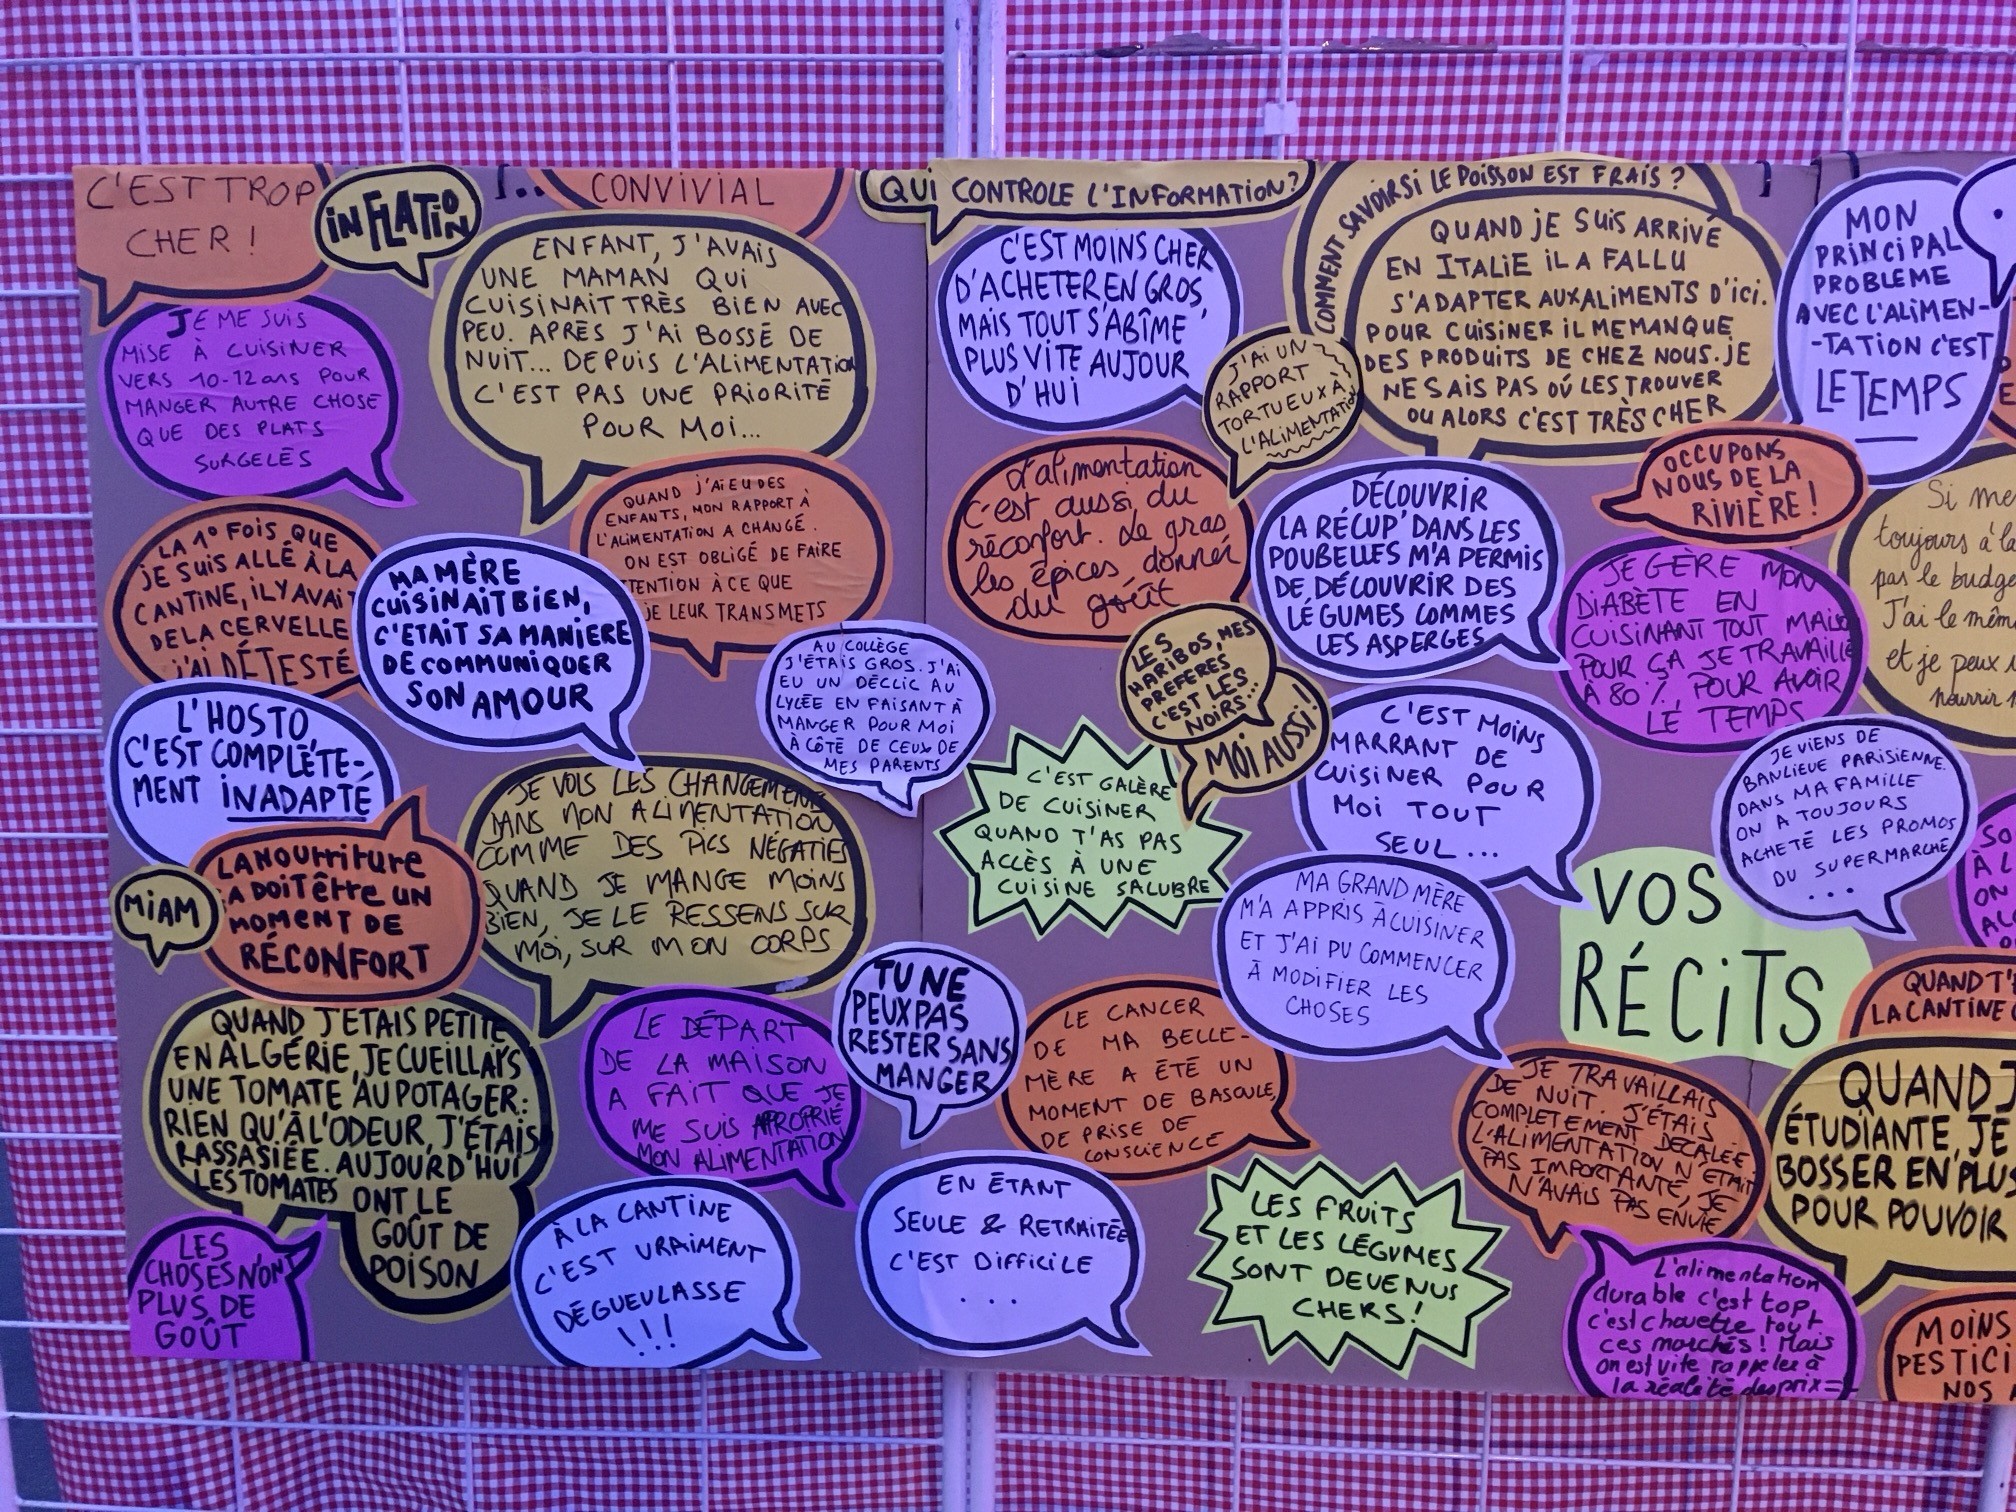 C'EST TROP
CHER !
INFLATION
CONVIVIAL
QUI CONTROLE L'INFORMATION?
COMMENT SAVOIR SI LE POISSON EST FRAIS ?
JE ME SUIS
MISE À CUISINER
VERS 10-12 ans POUR
MANGER AUTRE CHOSE
QUE DES PLATS
SURGELÉS
ENFANT, J'AVAIS
UNE MAMAN QUI
CUISINAIT TRÈS BIEN AVEC
PEU. APRÈS J'AI BOSSÉ DE
NUIT... DEPUIS L'ALIMENTATION
C'EST PAS UNE PRIORITÉ
POUR MOI...
C'EST MOINS CHER
D'ACHETER EN GROS,
MAIS TOUT S'ABÎME
PLUS VITE AUJOUR
D'HUI
J'AI UN
RAPPORT
TORTUEUX À
L'ALIMENTATION
QUAND JE SUIS ARRIVÉ
EN ITALIE IL A FALLU
S'ADAPTER AUX ALIMENTS D'ICI.
POUR CUISINER IL ME MANQUE
DES PRODUITS DE CHEZ NOUS. JE
NE SAIS PAS OÚ LES TROUVER
OU ALORS C'EST TRÈS CHER
MON
PRINCIPAL
PROBLEME
AVEC L'ALIMEN-
-TATION C'EST
LE TEMPS
OCCUPONS
NOUS DE LA
RIVIÈRE !
LA 1° FOIS QUE
JE SUIS ALLÉ À LA
CANTINE, IL Y AVAIT
DE LA CERVELLE
J'AI DÉTESTÉ
MA MÈRE
CUISINAIT BIEN,
C'ETAIT SA MANIERE
DE COMMUNIQUER
SON AMOUR
QUAND J'AI EU DES
ENFANTS, MON RAPPORT À
L'ALIMENTATION A CHANGÉ.
ON EST OBLIGÉ DE FAIRE
TTENTION À CE QUE
JE LEUR TRANSMETS
AU COLLÈGE
J'ÉTAIS GROS. J'AI
EU UN DÉCLIC AU
LYCÉE EN FAISANT À
MANGER POUR MOI
À CÔTÉ DE CEUX DE
MES PARENTS
L'alimentation
c'est aussi du
réconfort. Le gras
les épices, donner
du goût
DÉCOUVRIR
LA RÉCUP' DANS LES
POUBELLES M'A PERMIS
DE DÉCOUVRIR DES
LÉGUMES COMMES
LES ASPERGES
JE GÈRE MON
DIABÈTE EN
CUISINANT TOUT MAIS
POUR ÇA JE TRAVAILLE
À 80 % POUR AVOIR
LE TEMPS
Si me
toujours à la
pas le budge
J'ai le mêm
et je peux
nourrir
LES
HARIBOS, MES
PRÉFÉRÉS
C'EST LES
NOIRS...
MOI AUSSI !
L'HOSTO
C'EST COMPLÈTE-
MENT INADAPTÉ
MIAM
LA NOURRITURE
ÇA DOIT ÊTRE UN
MOMENT DE
RÉCONFORT
JE VOIS LES CHANGEMENTS
DANS MON ALIMENTATION
COMME DES PICS NÉGATIFS
QUAND JE MANGE MOINS
BIEN, JE LE RESSENS SUR
MOI, SUR MON CORPS
C'EST GALÈRE
DE CUISINER
QUAND T'AS PAS
ACCÈS À UNE
CUISINE SALUBRE
C'EST MOINS
MARRANT DE
CUISINER POUR
MOI TOUT
SEUL...
JE VIENS DE
BANLIEUE PARISIENNE.
DANS MA FAMILLE
ON A TOUJOURS
ACHETÉ LES PROMOS
DU SUPERMARCHÉ
...
MA GRAND MÈRE
M'A APPRIS À CUISINER
ET J'AI PU COMMENCER
À MODIFIER LES
CHOSES
VOS
RÉCITS
QUAND T'
LA CANTINE
QUAND J'ETAIS PETITE
EN ALGÉRIE, JE CUEILLAIS
UNE TOMATE AU POTAGER :
RIEN QU'À L'ODEUR, J'ÉTAIS
RASSASIÉE. AUJOURD'HUI
LES TOMATES ONT LE
GOÛT DE
POISON
LE DÉPART
DE LA MAISON
A FAIT QUE JE
ME SUIS APPROPRIÉ
MON ALIMENTATION
TU NE
PEUX PAS
RESTER SANS
MANGER
LE CANCER
DE MA BELLE-
MÈRE A ÉTÉ UN
MOMENT DE BASCULE,
DE PRISE DE
CONSCIENCE
JE TRAVAILLAIS
DE NUIT. J'ÉTAIS
COMPLETEMENT DECALÉE.
L'ALIMENTATION N'ÉTAIT
PAS IMPORTANTE, JE
N'AVAIS PAS ENVIE
QUAND J
ÉTUDIANTE, JE
BOSSER EN PLUS
POUR POUVOIR
LES
CHOSES N'ONT
PLUS DE
GOÛT
À LA CANTINE
C'EST VRAIMENT
DÉGUEULASSE
!!!
EN ÉTANT
SEULE & RETRAITÉE
C'EST DIFFICILE
...
LES FRUITS
ET LES LÉGUMES
SONT DEVENUS
CHERS !
L'alimentation
durable c'est top,
c'est chouette tout
ces marchés ! Mais
on est vite rappelée à
la réalité des prix
MOINS
PESTICI
NOS